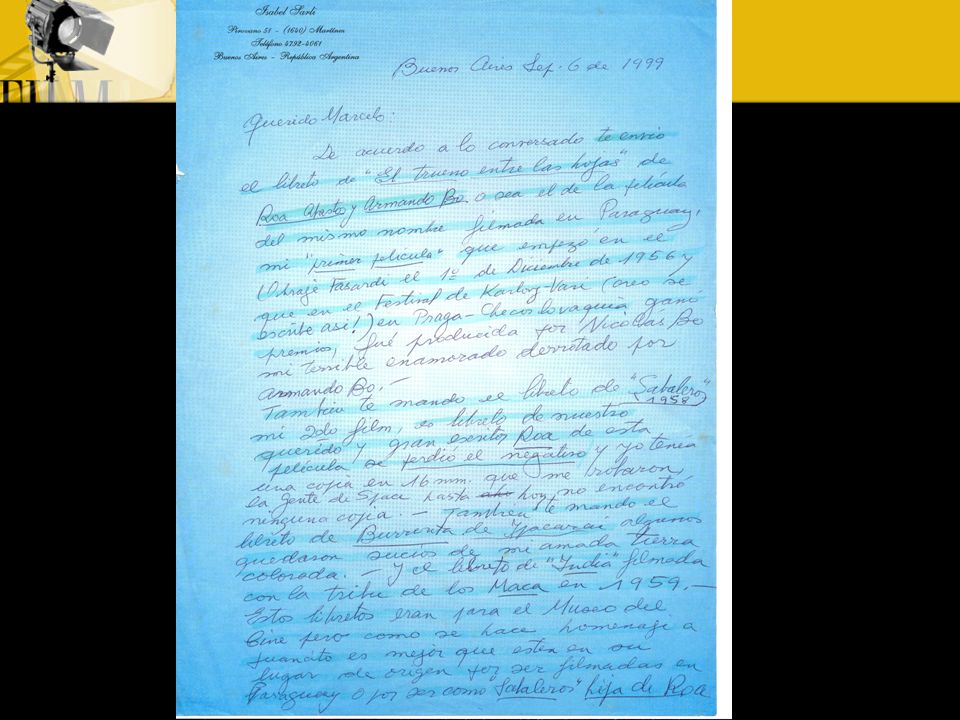 FILM
Isabel Sarli
Pirovano 51 - (1640) Martínez
Teléfono 4792-4061
Buenos Aires - República Argentina
Buenos Aires Sep. 6 de 1999
Querido Marcelo:
De acuerdo a lo conversado te envio
el libreto de "El trueno entre las hojas" de
Roa Bastos y Armando Bo. o sea el de la película
del mismo nombre filmada en Paraguay,
mi "primer película" que empezó en el
Obraje Fasardi el 1º de Diciembre de 1956 y
que en el Festival de Karlovy-Vari (creo se
escribe asi!) en Praga-Checoslovaquia ganó
premios, fué producida por Nicolás Bo
mi terrible enamorado derrotado por
Armando Bo.-
Tambien te mando el libreto de "Sabaleros"
1958
mi 2do film, es libreto de nuestro
querido y gran escritor Roa de esta
película se perdió el negativo y yo tenia
una copia en 16 mm. que me robaron
la gente de Space hasta hoy no encontré
ninguna copia.- Tambien te mando el
libreto de Burrerita de Ypacarai algunos
quedaron sucios de mi amada tierra
colorada.- Y el libreto de "India" filmada
con la tribu de los Maca en 1959.-
Estos libretos eran para el Museo del
Cine pero como se hace homenaje a
Juancito es mejor que esten en su
lugar de origen por ser filmadas en
Paraguay o por ser como "Sabaleros" hija de Roa